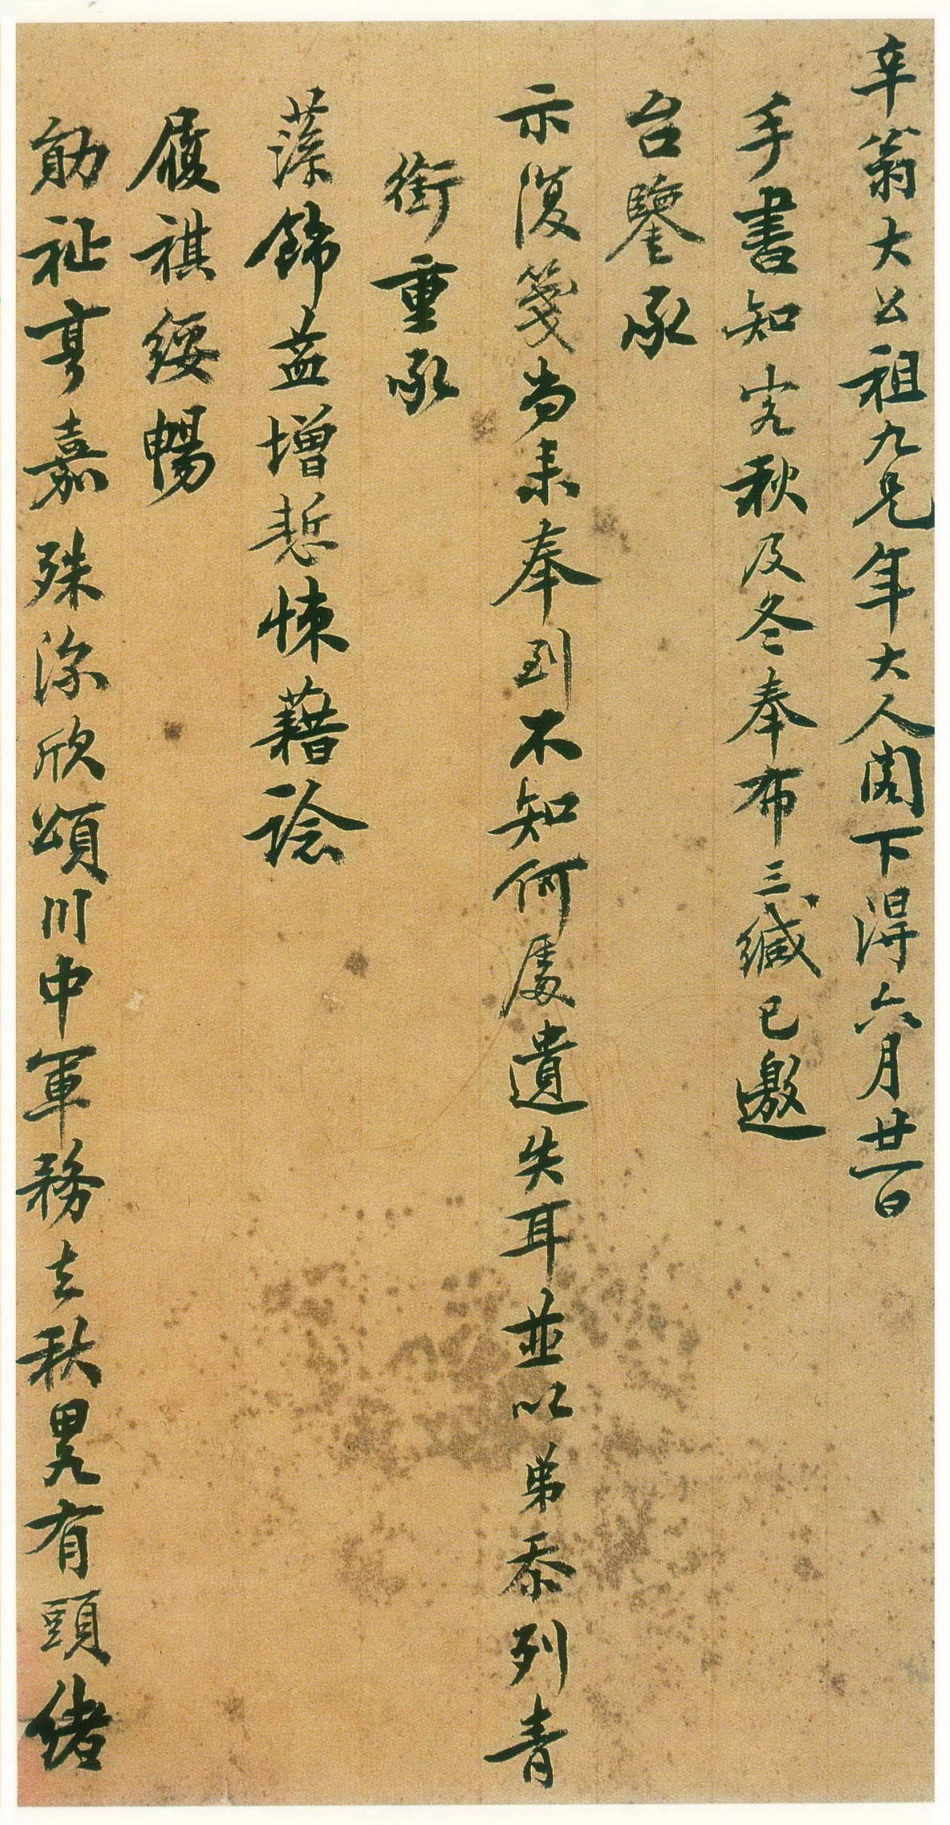 辛翁大公祖九兄年大人閣下得六月廿一日
手書知客秋及冬奉布三緘已邀
台鑒承
示復箋尚未奉到不知何處遺失耳並以弟忝列青
銜重承
藻飾益增慙悚藉諗
履祺綏暢
勛祉亨嘉殊深欣頌川中軍務去秋畧有頭緒